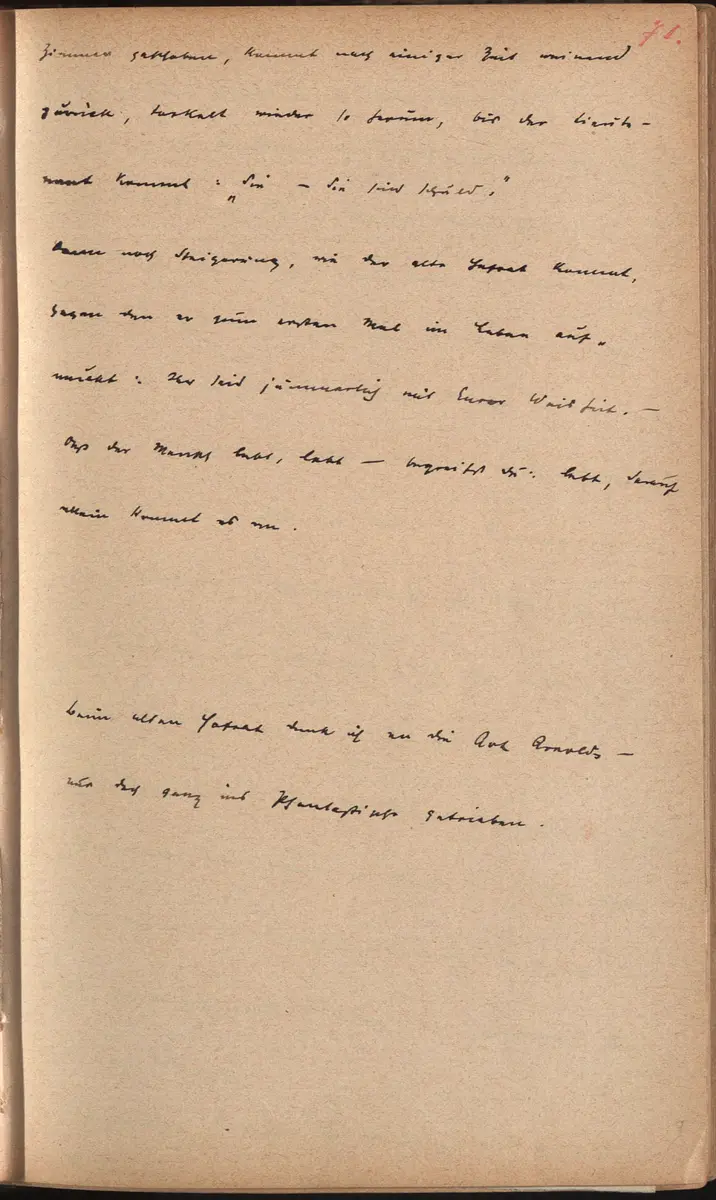 71.
Zimmer geschoben, kommt nach einiger Zeit weinend
zurück, torkelt wieder so herum, bis der Lieute-
nant kommt: „Sie – Sie sind schuld."
Dann noch Steigerung, wie der alte Hofrat kommt,
gegen den er zum ersten Mal im Leben auf-
muckt: Ihr seid jämmerlich mit Eurer Weisheit. –
Daß der Mensch lebt, lebt – begreifst du: lebt, darauf
allein kommt es an.
Beim alten Hofrat denk ich an die Art Arnolds –
nur das ganz ins Phantastische getrieben.